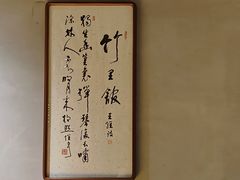 竹里館
王維詩
獨坐幽篁裏彈琴復長嘯
深林人不知明月來相照